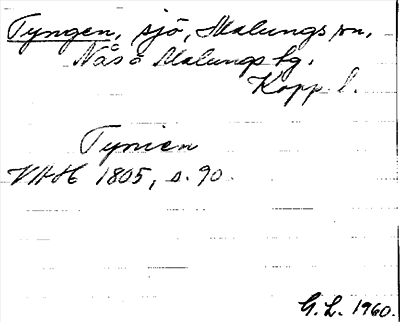 Tyngen, sjö, Malungs sn,
Nås o Malungs tg.
Kopp. l.
Tynien
VAH 1805, s. 90.
G. L. 1960.